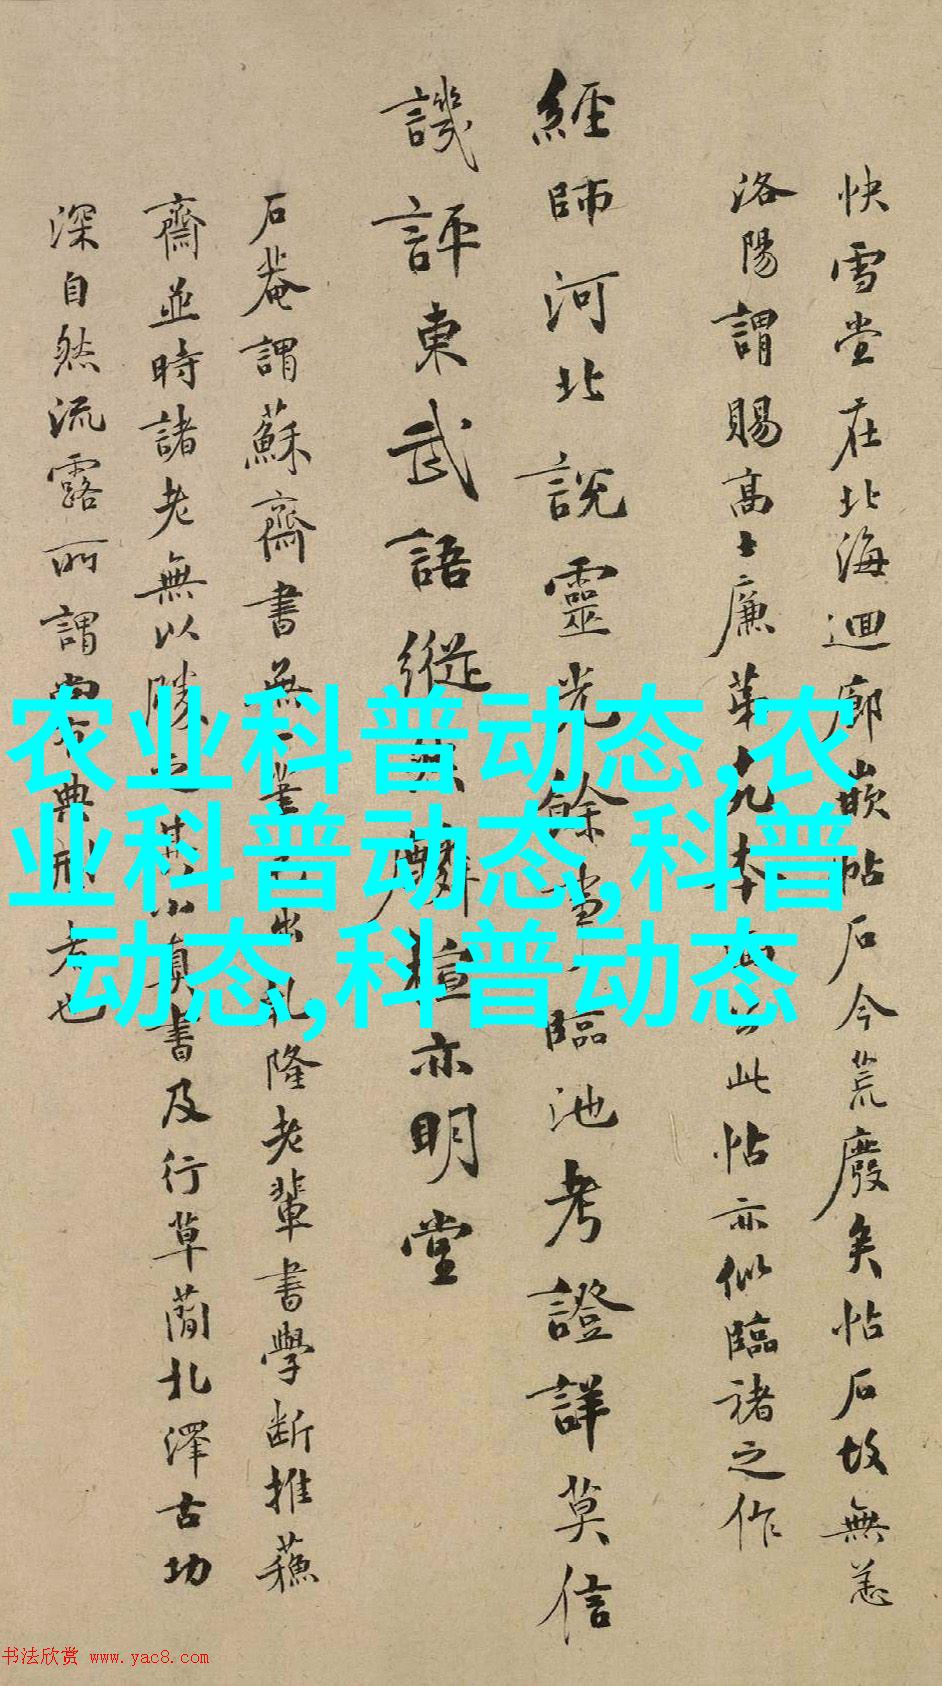 快雪堂在北海迴廊嵌帖石今荒廢矣帖石故無恙
洛陽謂賜高士廉第九本此帖亦似臨褚之作
經師河北說靈光餘當臨池考證詳莫信
譏評東武語縱亦明堂
石菴謂蘇齋書無一筆出乾隆老輩書學斷推蘇
齋並時諸老無以勝之其小真書及行草蘭北澤古功
深自然流露所謂典刑者也
农业科普动态,农
业科普动态,科普
动态,科普动态
书法欣赏 www.yac8.com